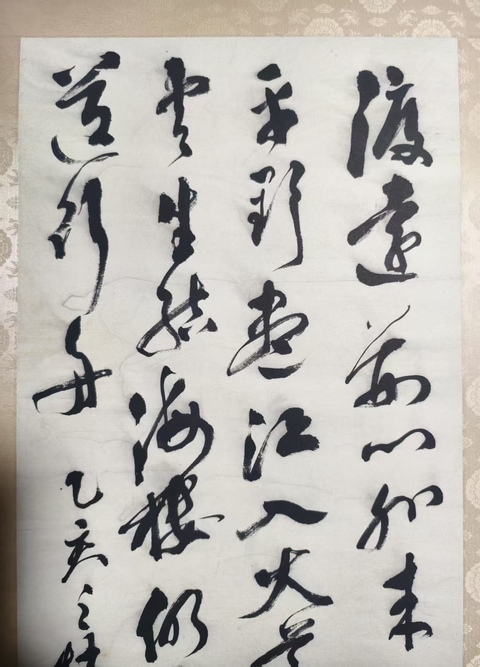 渡遠荊門外来
平野盡江入大
雲生結海樓仍
送行舟
乙亥之